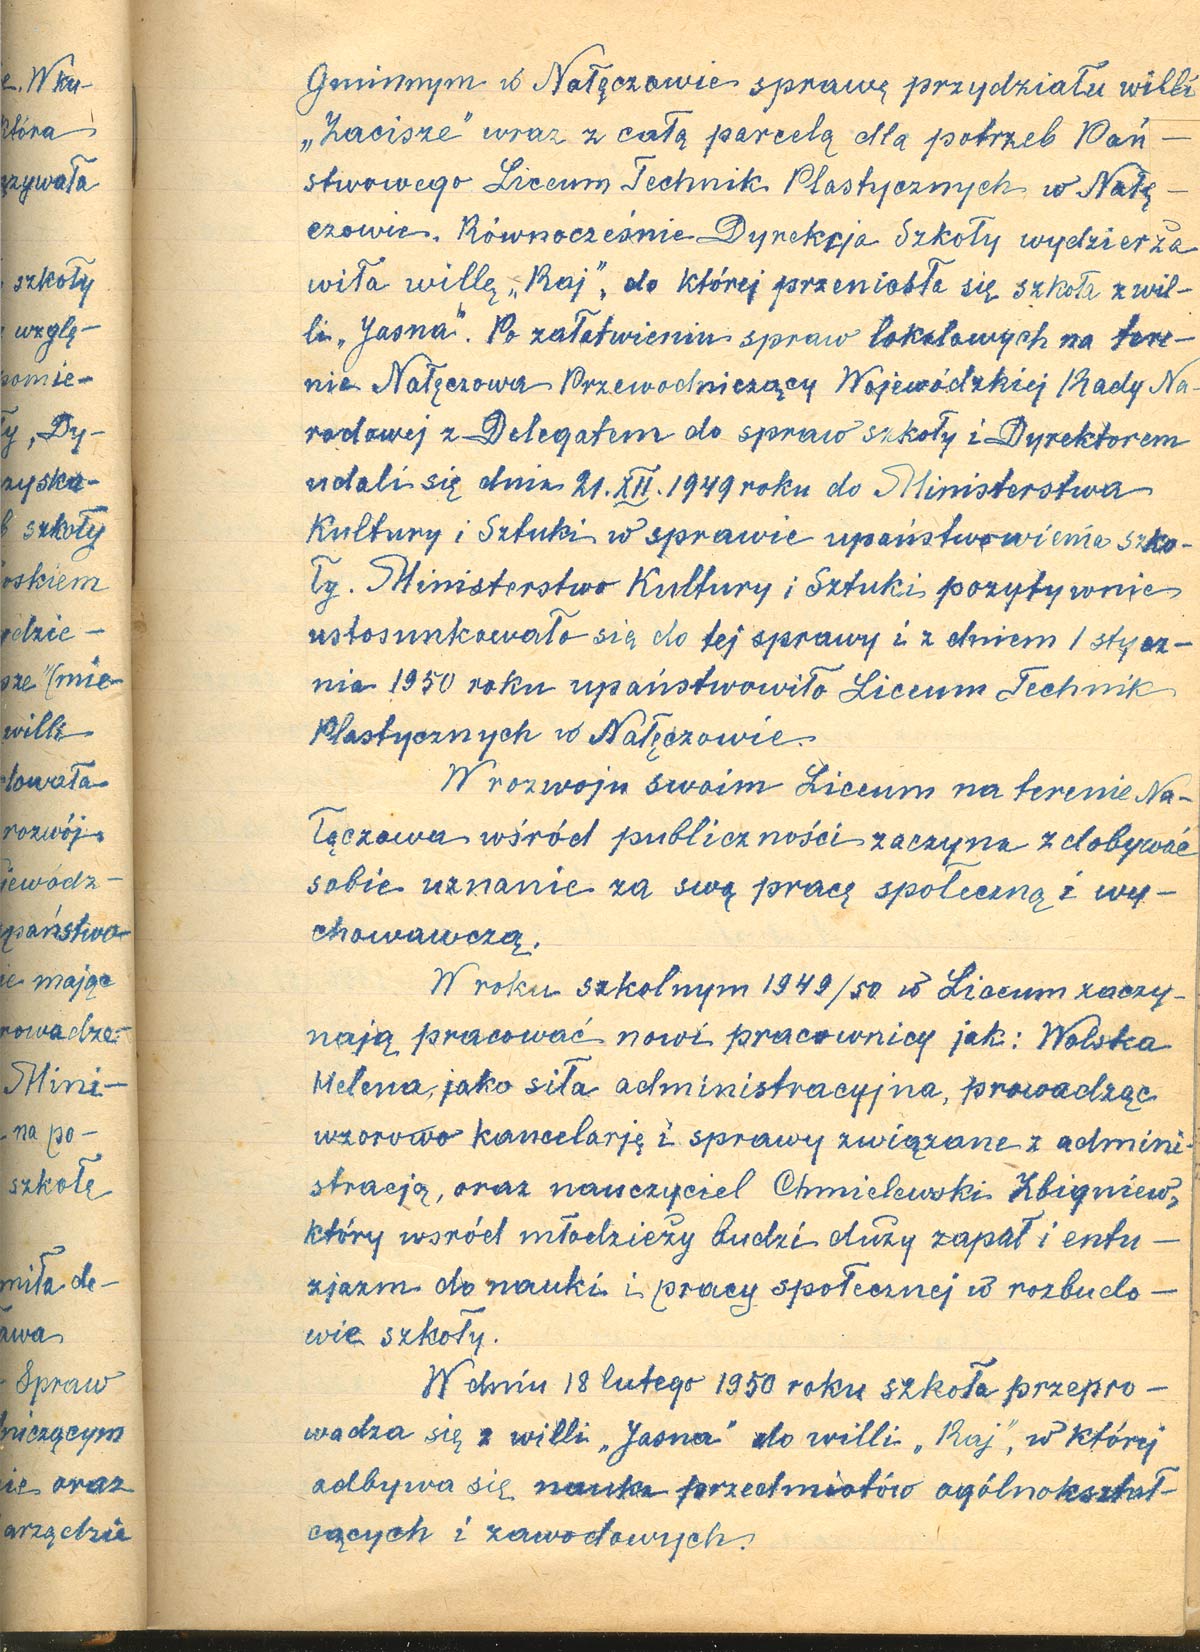 e. W ku-
która
szkoły
wzglę-
pomie-
ły, Dy-
zyska-
szkoły
skiem
dzie -
sze" (mie-
willi
rozwój
jewódz-
państwo-
ie mając
rowadze-
Mini-
- na po-
szkołę
miła de-
awa
- Spraw
niczącym
ie oraz
arządzie
Gminnym w Nałęczowie sprawę przydziału willi
„Zacisze" wraz z całą parcelą dla potrzeb Pań-
stwowego Liceum Technik Plastycznych w Nałę-
czowie. Równocześnie Dyrekcja Szkoły wydzierża
wiła willę „Raj", do której przeniosła się szkoła z wil-
li „Jasna". Po załatwieniu spraw lokalowych na tere-
nie Nałęczowa Przewodniczący Wojewódzkiej Rady Na-
rodowej z Delegatem do spraw szkoły i Dyrektorem
udali się dnia 21.XII.1949 roku do Ministerstwa
Kultury i Sztuki w sprawie upaństwowienia szko-
ły. Ministerstwo Kultury i Sztuki pozytywnie
ustosunkowało się do tej sprawy i z dniem 1 stycz-
nia 1950 roku upaństwowiło Liceum Technik
Plastycznych w Nałęczowie.
W rozwoju swoim Liceum na terenie Na-
łęczowa wśród publiczności zaczyna zdobywać
sobie uznanie za swą pracę społeczną i wy-
chowawczą.
W roku szkolnym 1949/50 w Liceum zaczy-
nają pracować nowi pracownicy jak: Wolska
Helena, jako siła administracyjna, prowadząc
wzorowo kancelarję i sprawy związane z admini-
stracją, oraz nauczyciel Chmielewski Zbigniew,
który wsród młodzieży budzi duży zapał i entu-
zjazm do nauki i pracy społecznej w rozbudo-
wie szkoły.
W dniu 18 lutego 1950 roku szkoła przepro-
wadza się z willi „Jasna" do willi „Raj", w której
odbywa się nauka przedmiotów ogólnokształ-
cących i zawodowych.